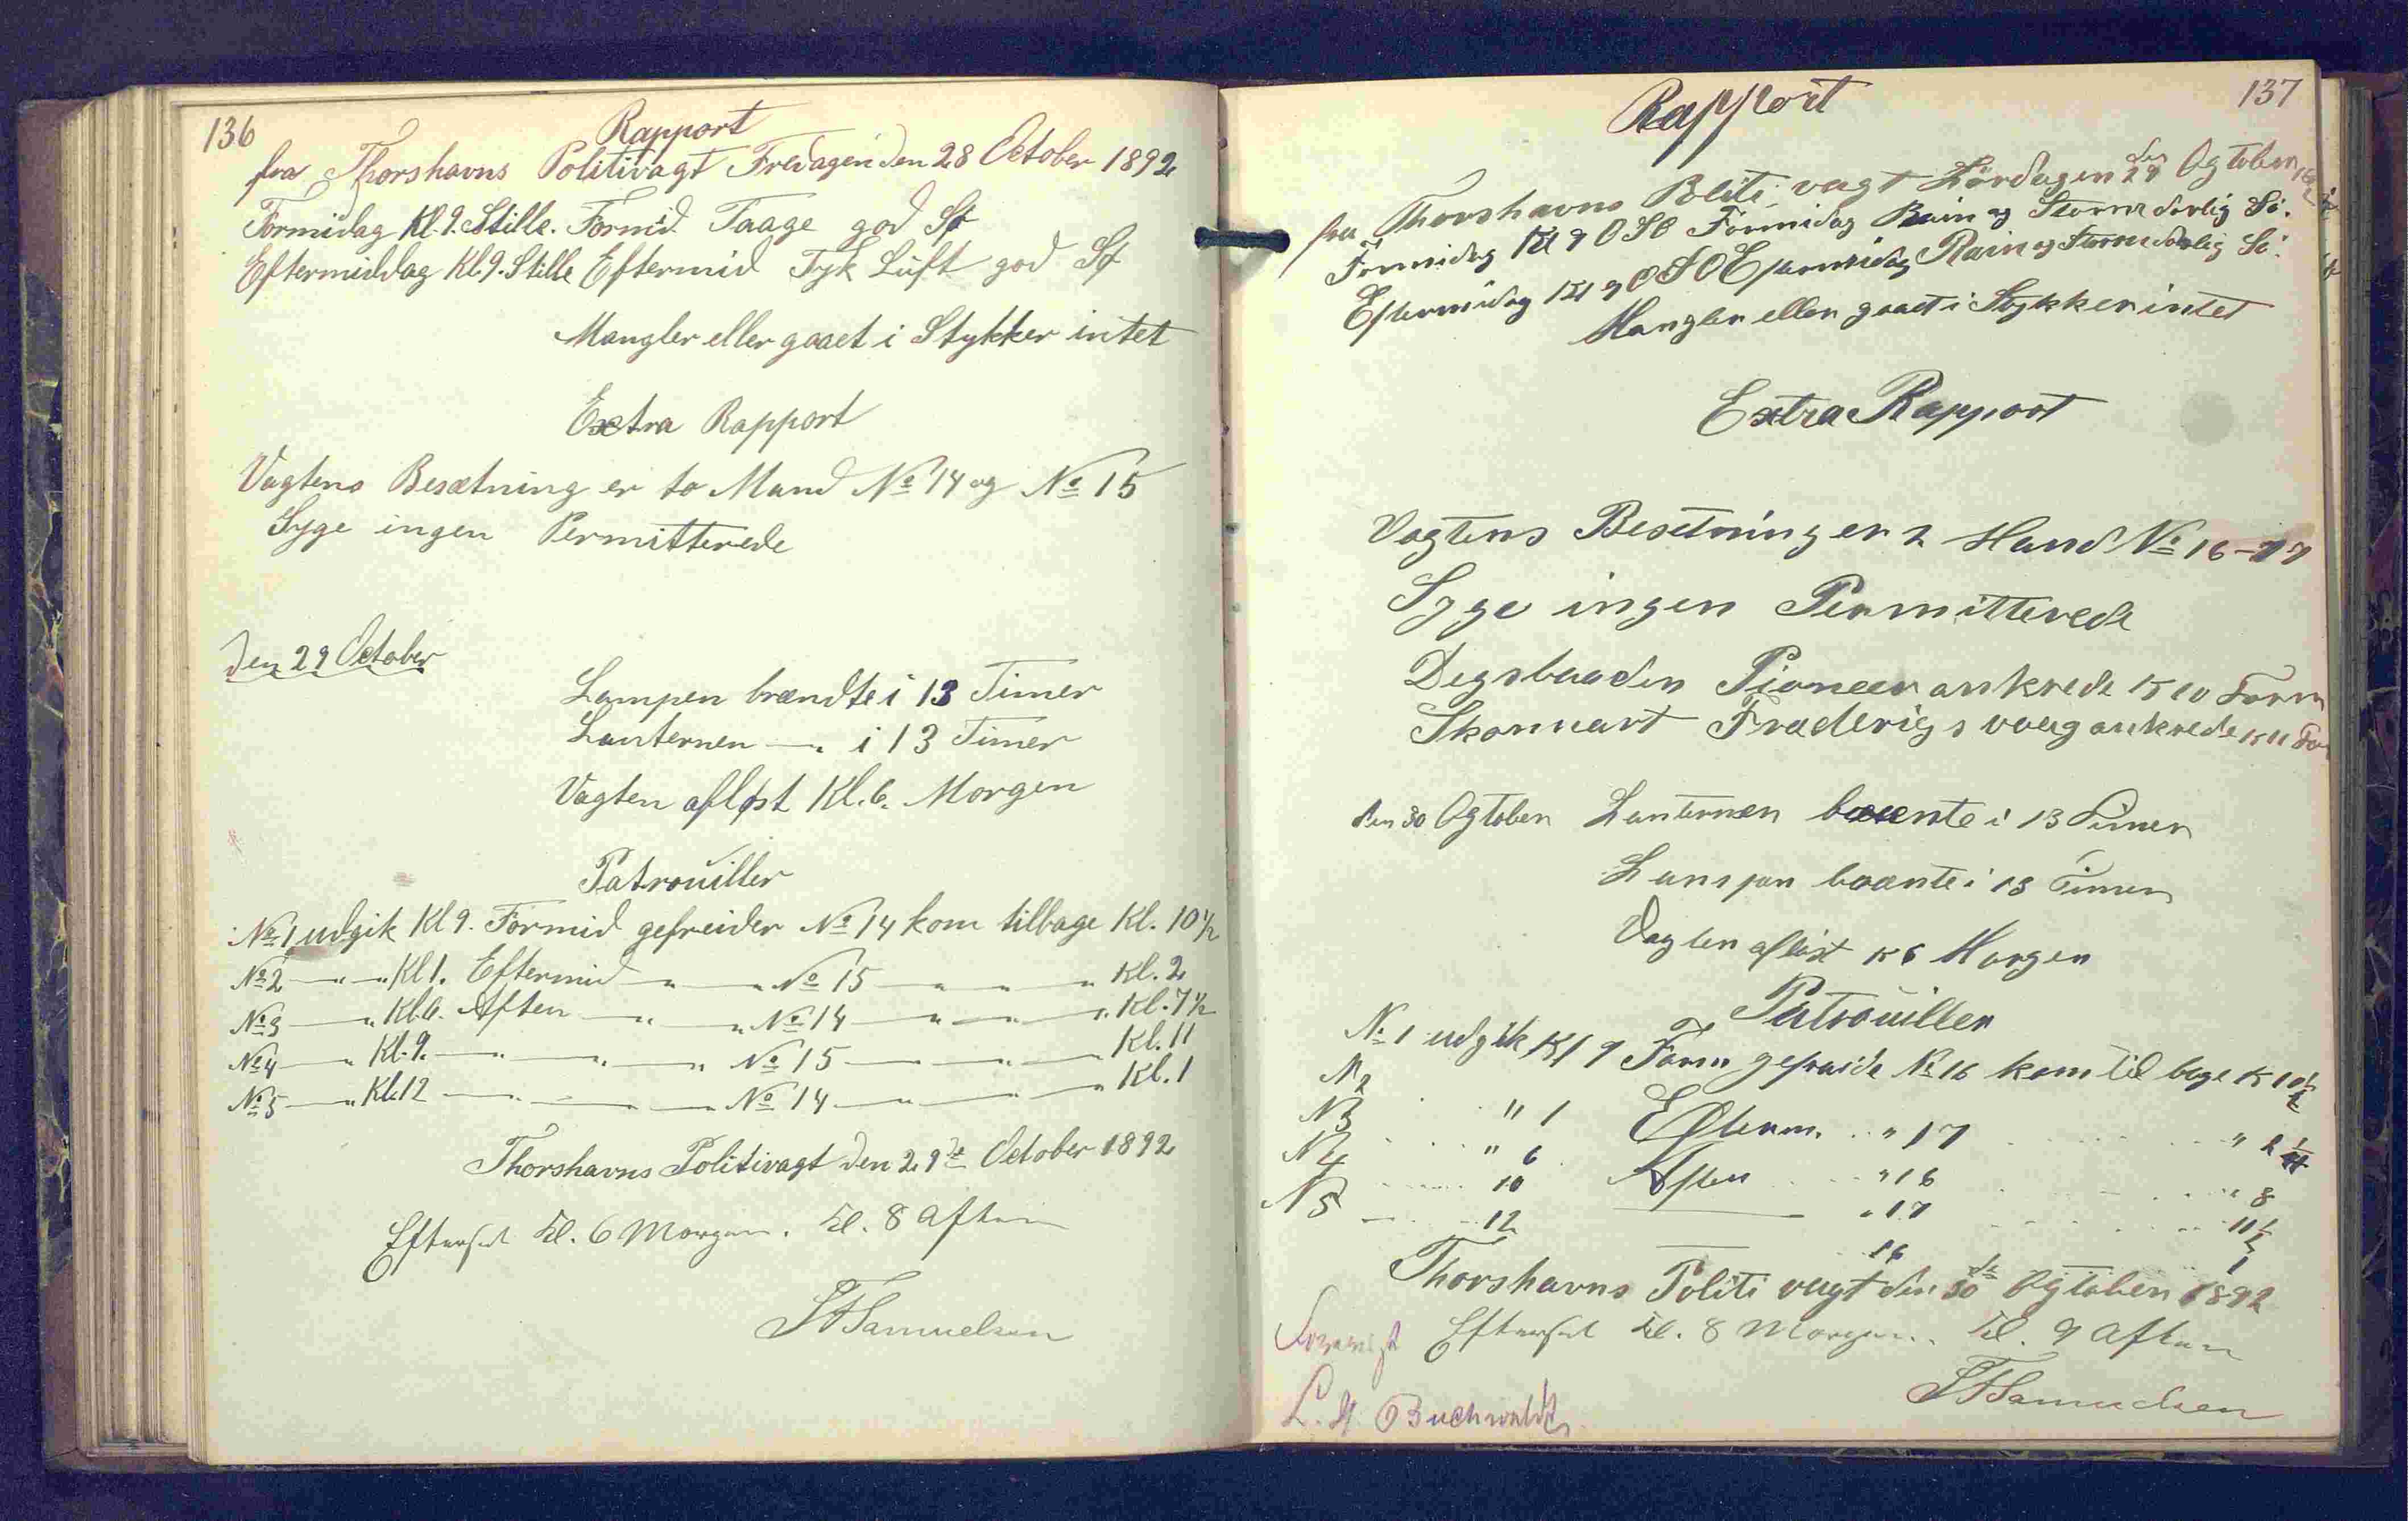 136
Rapport
fra Thorshavns Politivagt Fredagen den 28 October 1892
Formidag Kl. 9. Stille. Formid Taage god Sø
Eftermiddag Kl 9. Stille Eftermid Tyk Luft god Sø
Mangler eller gaaet i Stykker intet
Extra Rapport
Vagtens Besætning er to Mand No 14 og No 15
Syge ingen Permitterede
Den 29 October
Lampen brændte i 13 Timer
Lanternen —„— i 13 Timer
Vagten afløst Kl. 6. Morgen
Patrouiller
No 1 udgik Kl 9. Formid gefreider No 14 kom tilbage Kl. 10½
No 2 —„—„ Kl 1. Eftermid —„—„ No 15 —„—„—„ Kl. 2
No 3 —„ Kl. 6. Aften —„—„ No 14 —„—„—„ Kl. 7½
No 4 —„ Kl. 9. —„—„—„ No 15 —„—„—„ Kl. 11
No 5 —„ Kl. 12 —„—„—„ No 14 —„—„—„ Kl. 1
Thorshavns Politivagt den 29de October 1892
Efterset Kl. 6 Morgen. Kl. 8 Aften
Samuelsen
137
Rapport
fra Thorshavns Politi vagt Lördagen den 29 Ogtober
Formidag Kl 9 OSO Formidag Rain og Storm dorlig Sö.
Eftermidag Kl 9 OSO Eftermidag Rain og Storm dorlig Sö.
Mangler eller gaaet i Stykker intet
Extra Rapport
Vagtens Besetning er 2 Mand No 16–17
Syge ingen Permitterede
Degsbaaden Pioneer ankrede K 10 Form
Skonnart Fræderigsvaag ankrede K 11 For
den 30 Ogtober Lanternen brænte i 13 Timer
Lampen brænte i 13 Timer
Vagten aflöst K 6 Morgen
Patrouiller
No 1 udgik Kl 9 Form gefraide No 16 kom til bage K 10½
N 2 " 1 Efterm. " 17 " 2½
N 3 " 6 Aften " 16 " 8
N 4 10 — " 17 " 11½
N 5 12 — 16 " 1
Thorshavns Politi vagt den 30de Ogtober 1892
Efterset Kl. 8 Morgen. Kl. 9 Aften
Samuelsen
L. A. Buchwaldt